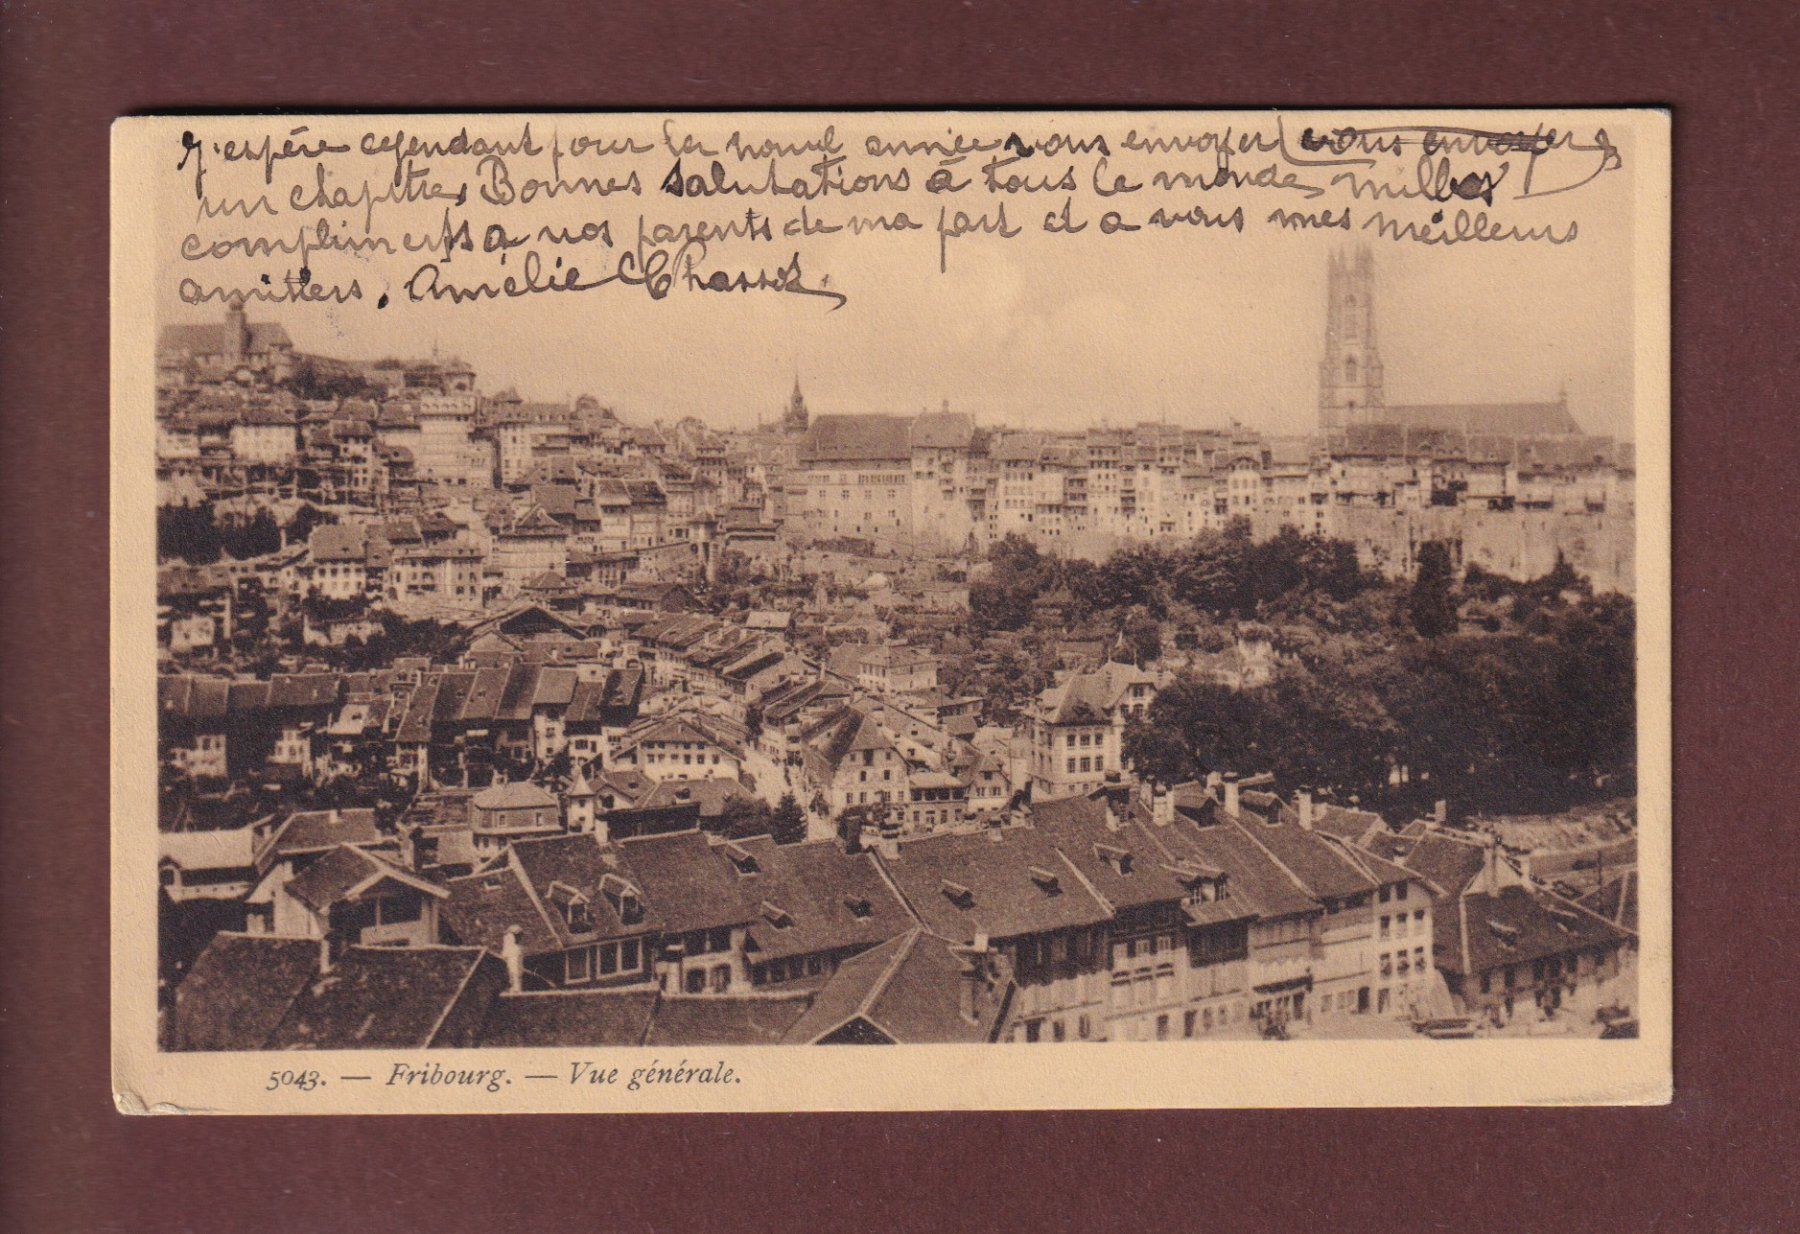 J'espère cependant pour la nouvel année vous envoyer vous envoyer
un chapitre, Bonnes salutations à tous le monde milles
compliments a vos parents de ma part et a vous mes meilleurs
amitiers. Amélie
5043. — Fribourg. — Vue générale.